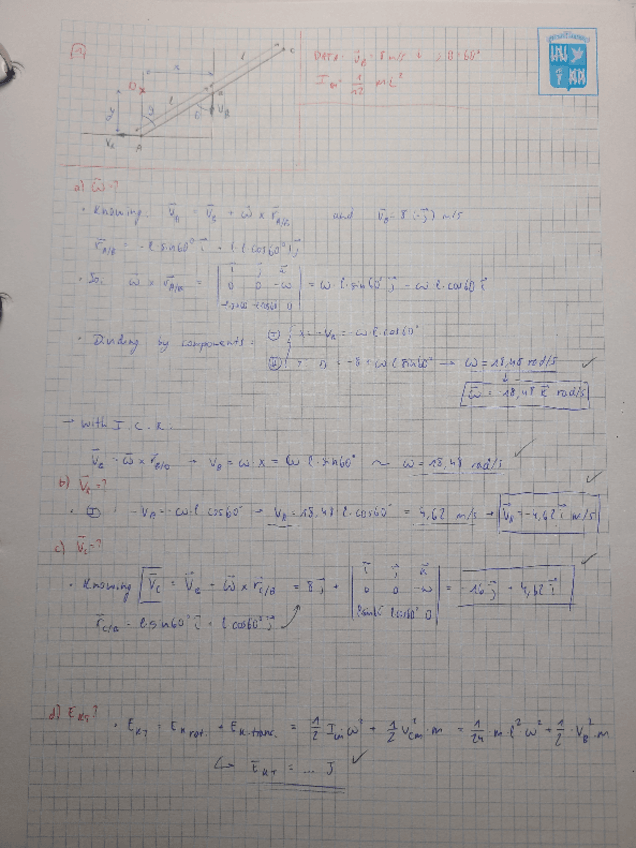 DATA: v⃗B = 8 m/s ; θ = 60°
I = 1/12 m·l²
x
l
l
C
O
y
θ
θ
B
VB
VA
A
a) ω⃗ = ?
· Knowing V⃗A = V⃗B + ω⃗ × r⃗A/B and V⃗B = 8 (-j⃗) m/s
r⃗A/B = -l·sin60° i⃗ - l·cos60° j⃗
· So: ω⃗ × r⃗A/B = | i⃗ j⃗ k⃗ | 0 0 -ω | -lsin60 -lcos60 0 | = ω·l·sin60° j⃗ - ω·l·cos60 i⃗
· Dividing by components: I x: -VA = -ω·l·cos60°
II Y: 0 = -8 + ω·l·sin60° → ω = 18,48 rad/s ✓
ω⃗ = -18,48 k⃗ rad/s
→ With I.C.R.:
V⃗B = ω⃗ × r⃗B/O → VB = ω·x = ω·l·sin60° ~ ω = 18,48 rad/s ✓
b) V⃗A = ?
· I: -VA = -ω·l·cos60° → VA = 18,48·l·cos60° = 4,62 m/s → V⃗A = -4,62 i⃗ m/s ✓
c) V⃗C = ?
· Knowing V⃗C = V⃗B + ω⃗ × r⃗C/B = -8 j⃗ + | i⃗ j⃗ k⃗ | 0 0 -ω | lsin60 lcos60 0 | = -16 j⃗ + 4,62 i⃗ ✓
r⃗C/B = l·sin60° i⃗ + l·cos60° j⃗
d) EKT?
· EKT = EK rot. + EK trans. = 1/2 I ω² + 1/2 Vcm²·m = 1/24 m·l²·ω² + 1/2·VB²·m
↳ EKT = ... J ✓